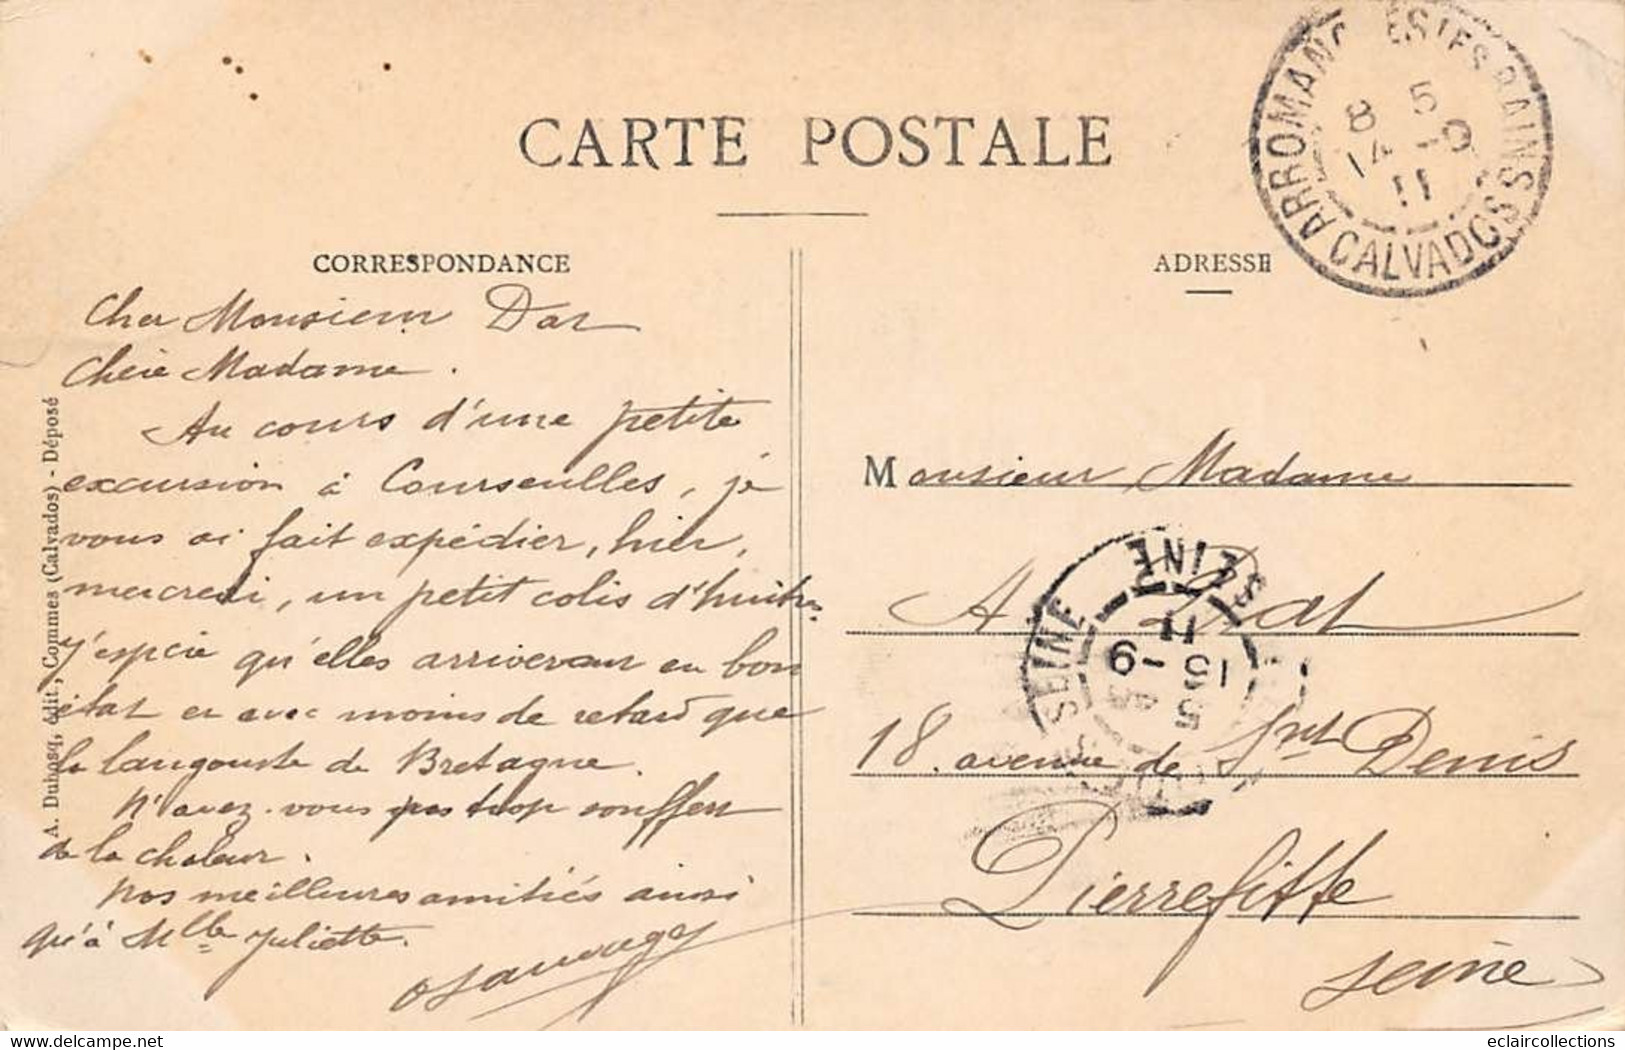 CARTE POSTALE
CORRESPONDANCE
Cher Monsieur Dat
Chère Madame.
Au cours d'une petite
excursion à Courseulles, je
vous ai fait expédier, hier,
mercredi, un petit colis d'huitres
J'espère qu'elles arriveront en bon
état et avec moins de retard que
la langouste de Bretagne.
N'avez-vous pas trop souffert
de la chaleur.
Nos meilleures amitiés ainsi
qu'à Mlle Juliette.
A. Dubosq, édit., Commes (Calvados) - Déposé
ADRESSE
Monsieur, Madame
A Dat
18. avenue de St Denis
Pierrefitte
Seine
ARROMANCHES LES BAINS
8 5
14 -9
11
CALVADOS
SEINE
11
15 -9
5
SEINE
eclaircollections